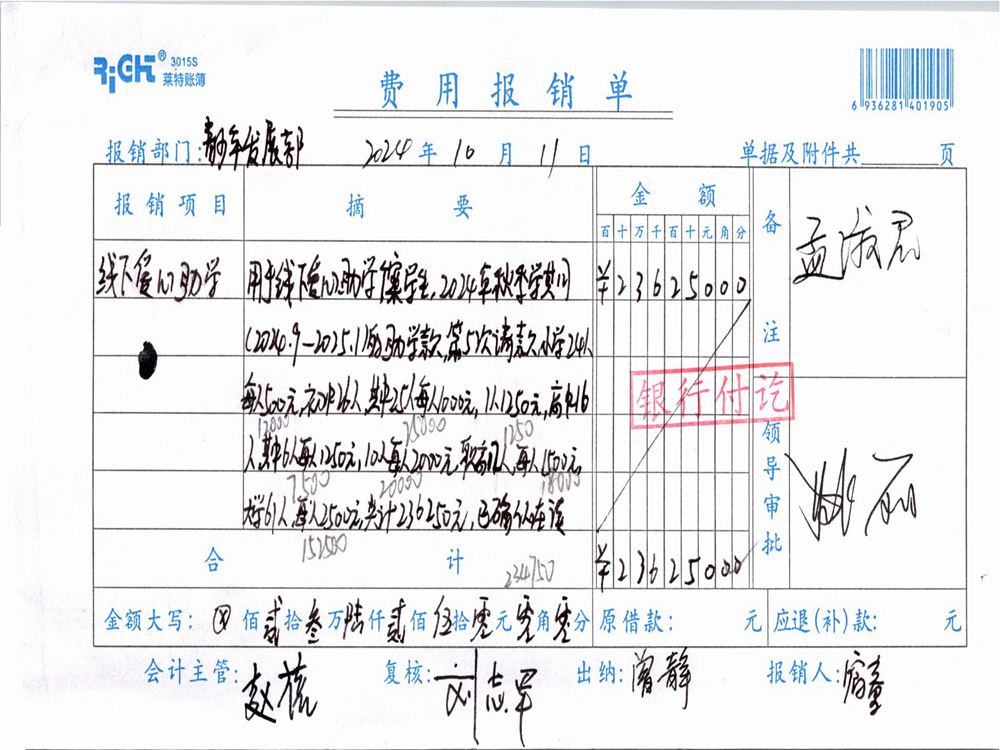 RiGHT® 3015S
莱特账簿
费用报销单
6 936281 401905
报销部门: 青少年发展部 2024 年 10 月 11 日 单据及附件共 页
报销项目 摘要 金额 备注
百 十 万 千 百 十 元 角 分
线下爱心助学 用于线下爱心助学 学生,2024年秋季学期 ¥23625000
(2024.9-2025.1)的助学款,第5次请款小学24人
每人500元,初中26人,其中25人每人1000元,1人1250元,高中16
12000 25000 1250
人,其中6人每人1250元,10人每人2000元,职高12人,每人1500元,
7500 20000 18000
大学61人,每人2500元,共计236250元,已确认在读
152500
合计 ¥23625000
234750
孟淑君
银行付讫
领导审批
金额大写: ⊗ 佰 贰 拾 叁 万 陆 仟 贰 佰 伍 拾 零 元 零 角 零 分 原借款: 元 应退(补)款: 元
会计主管: 赵 复核: 刘志军 出纳: 曾静 报销人: